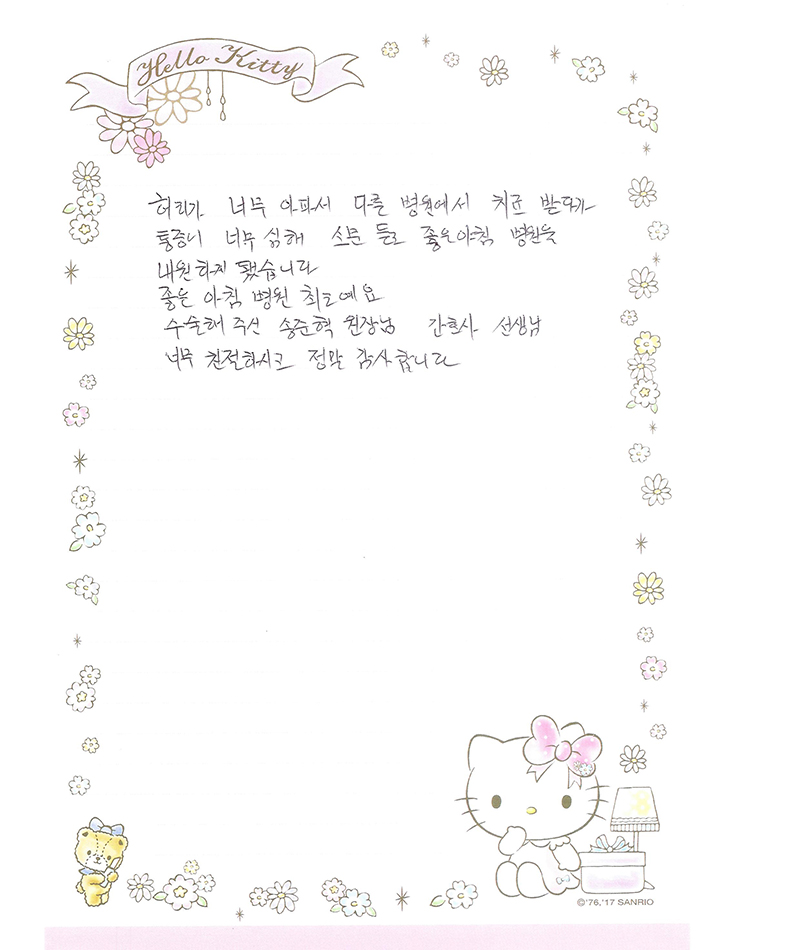 Hello Kitty
허리가 너무 아파서 다른 병원에서 치료 받다가
통증이 너무 심해 소문 듣고 좋은아침 병원을
내원하게 됐습니다
좋은 아침 병원 최고예요
수술해 주신 송준혁 원장님 간호사 선생님
너무 친절하시고 정말 감사합니다
©'76,'17 SANRIO